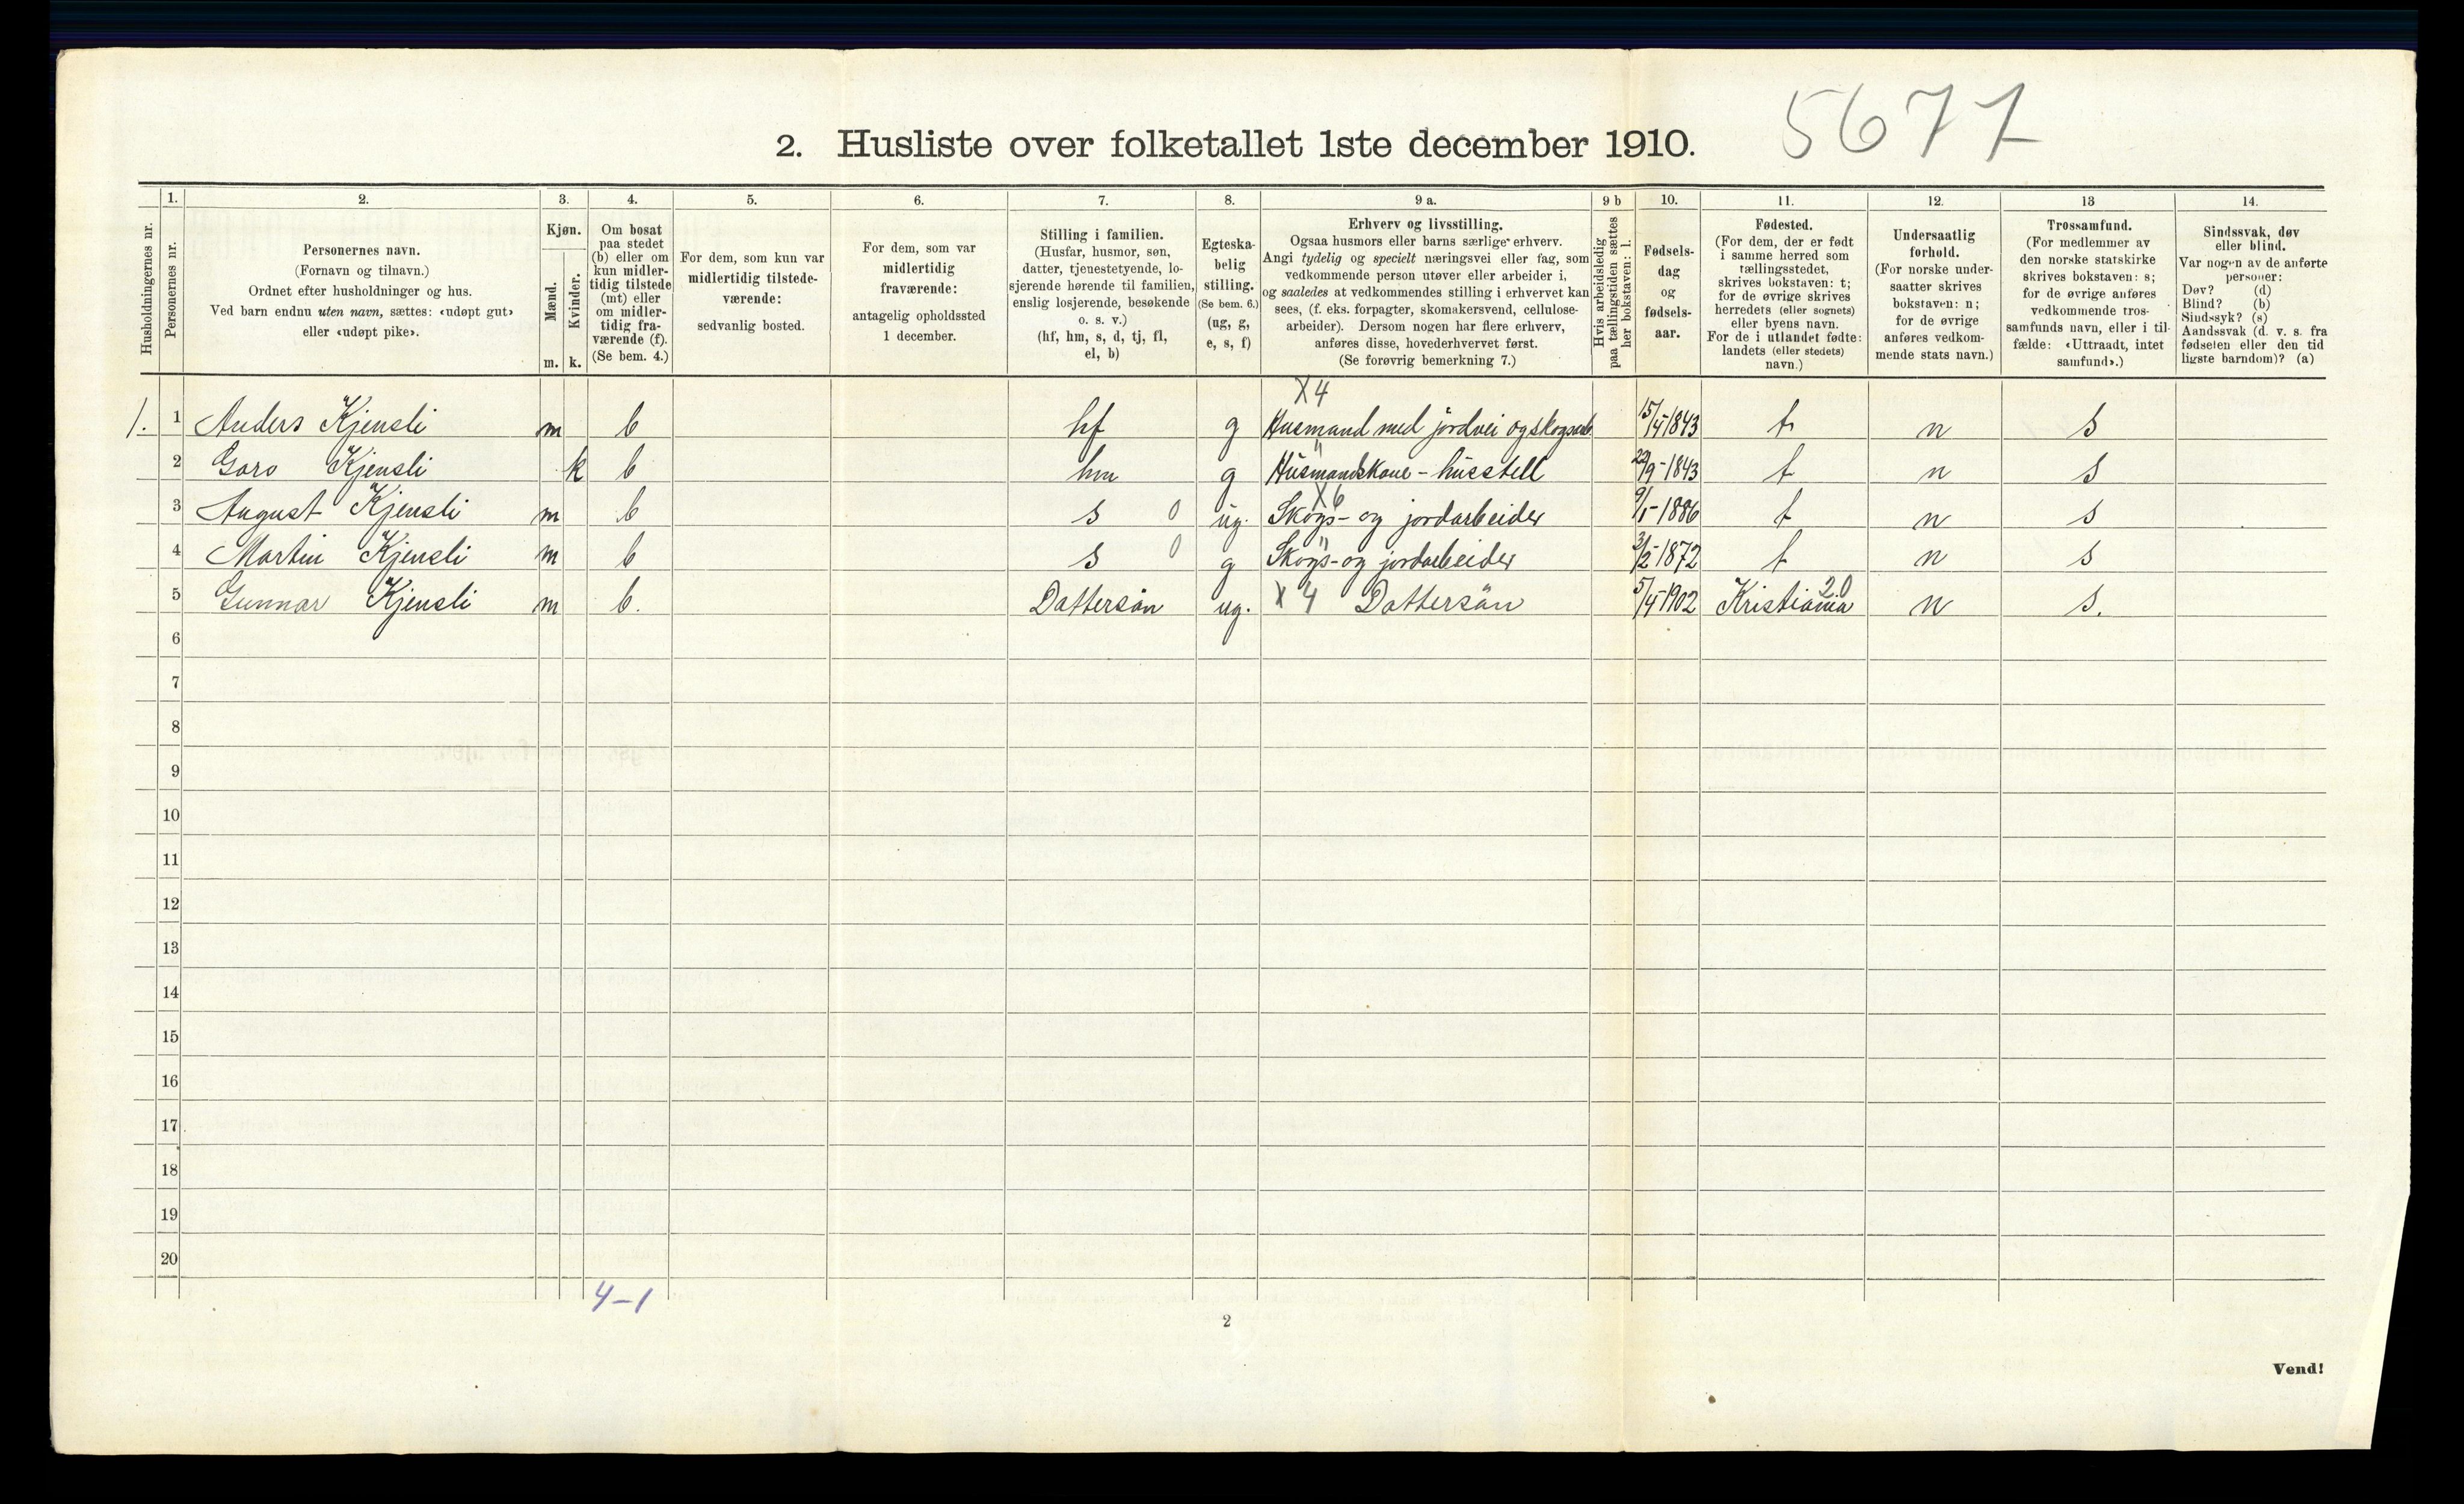 5677
2. Husliste over folketallet 1ste december 1910.
Husholdningernes nr.
1.
Personernes nr.
2.
Personernes navn.
(Fornavn og tilnavn.)
Ordnet efter husholdninger og hus.
Ved barn endnu uten navn, sættes: «udøpt gut»
eller «udøpt pike».
3.
Kjøn.
Mænd.
m.
Kvinder.
k.
4.
Om bosat
paa stedet
(b) eller om
kun midler-
tidig tilstede
(mt) eller
om midler-
tidig fra-
værende (f).
(Se bem. 4.)
5.
For dem, som kun var
midlertidig tilstede-
værende:
sedvanlig bosted.
6.
For dem, som var
midlertidig
fraværende:
antagelig opholdssted
1 december.
7.
Stilling i familien.
(Husfar, husmor, søn,
datter, tjenestetyende, lo-
sjerende hørende til familien,
enslig losjerende, besøkende
o. s. v.)
(hf, hm, s, d, tj, fl,
el, b)
8.
Egteska-
belig
stilling.
(Se bem. 6.)
(ug, g,
e, s, f)
9 a.
Erhverv og livsstilling.
Ogsaa husmors eller barns særlige erhverv.
Angi tydelig og specielt næringsvei eller fag, som
vedkommende person utøver eller arbeider i,
og saaledes at vedkommendes stilling i erhvervet kan
sees, (f. eks. forpagter, skomakersvend, cellulose-
arbeider). Dersom nogen har flere erhverv,
anføres disse, hovederhvervet først.
(Se forøvrig bemerkning 7.)
9 b
Hvis arbeidsledig
paa tællingstiden sættes
her bokstaven: l.
10.
Fødsels-
dag
og
fødsels-
aar.
11.
Fødested.
(For dem, der er født
i samme herred som
tællingsstedet,
skrives bokstaven: t;
for de øvrige skrives
herredets (eller sognets)
eller byens navn.
For de i utlandet fødte:
landets (eller stedets)
navn.)
12.
Undersaatlig
forhold.
(For norske under-
saatter skrives
bokstaven: n;
for de øvrige
anføres vedkom-
mende stats navn.)
13
Trossamfund.
(For medlemmer av
den norske statskirke
skrives bokstaven: s;
for de øvrige anføres
vedkommende tros-
samfunds navn, eller i til-
fælde: «Uttraadt, intet
samfund».)
14.
Sindssvak, døv
eller blind.
Var nogen av de anførte
personer:
Døv? (d)
Blind? (b)
Sindssyk? (s)
Aandssvak (d. v. s. fra
fødselen eller den tid-
ligste barndom)? (a)
X4
1. 1 Anders Kjensli m b hf g Husmand med jordvei og skogsarb 15/4-1843 t n s
2 Goro Kjensli k b hm g Husmandskone - husstell " 22/9-1843 t n s
X6
3 August Kjensli m b s 0 ug. Skogs- og jordarbeider 9/1-1886 t n s
4 Martin Kjensli m b s 0 g Skogs- og jordarbeider " 3/2-1872 t n s
5 Gunnar Kjensli m b. Dattersøn ug. X 4 Dattersøn 5/4-1902 Kristiania 20 n s.
6
7
8
9
10
11
12
13
14
15
16
17
18
19
20
4-1
2
Vend!